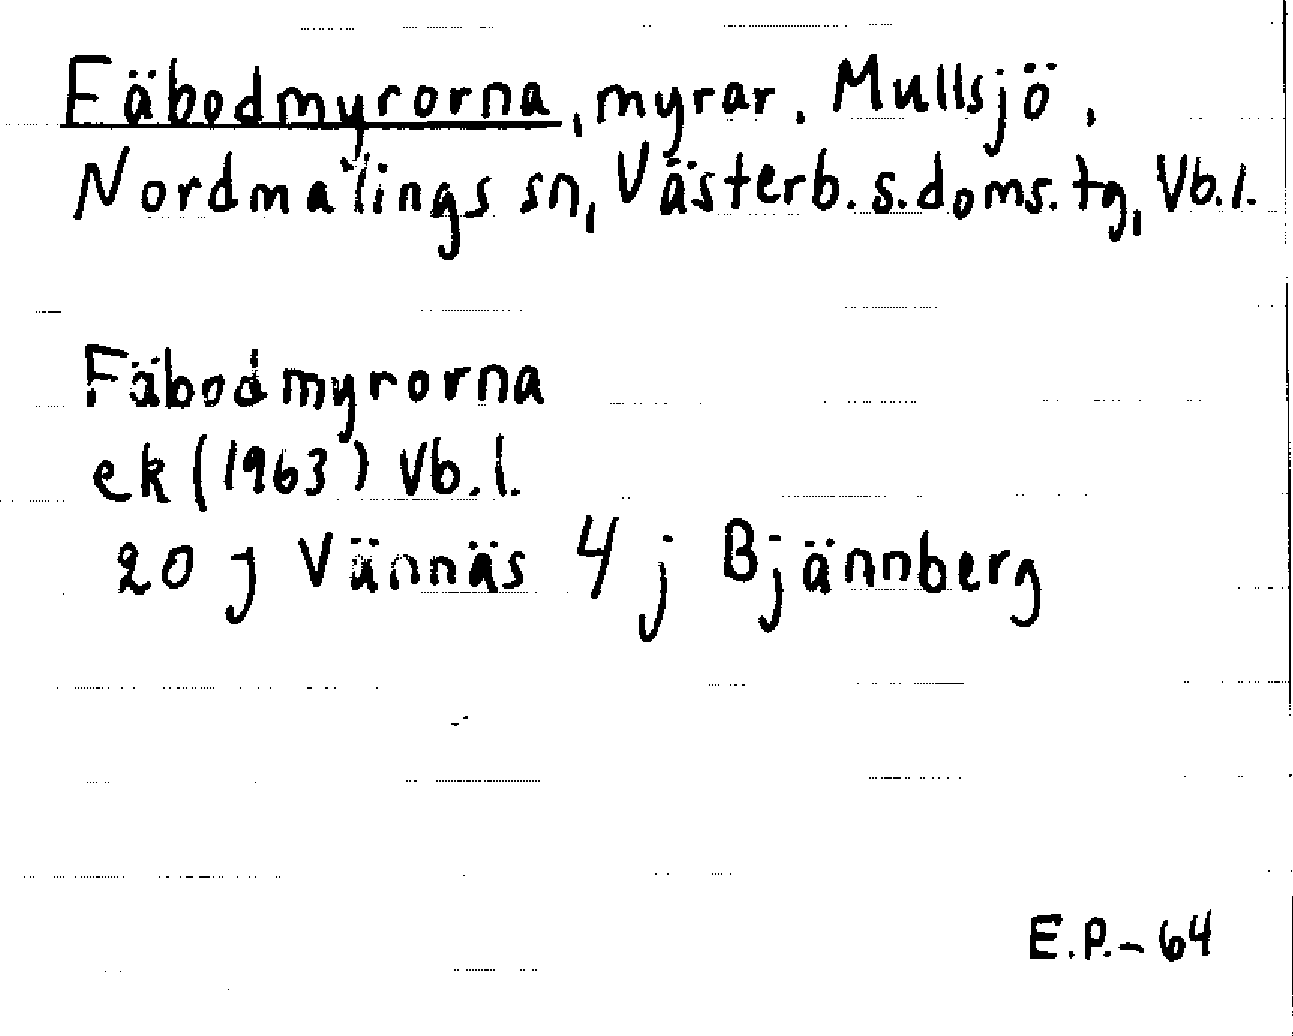 Fäbodmyrorna, myrar, Mullsjö,
Nordmalings sn, Västerb. s. doms. tg, Vb. l.
Fäbodmyrorna
ek (1963) Vb. l.
20 J Vännäs 4 j Bjännberg
E.P.-64